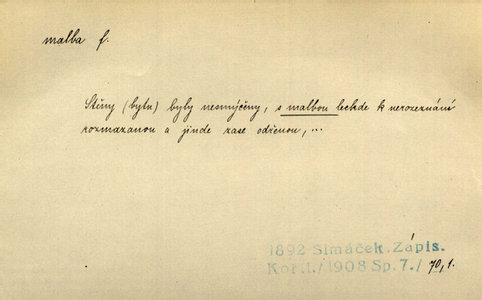 malba f.
Stěny (bytu) byly nesmýčeny, s malbou leckde k nerozeznání
rozmazanou a jinde zase odřenou, ...
1892 Šimáček. Zápis.
Kořil./1908 Sp.7./ 70,1.